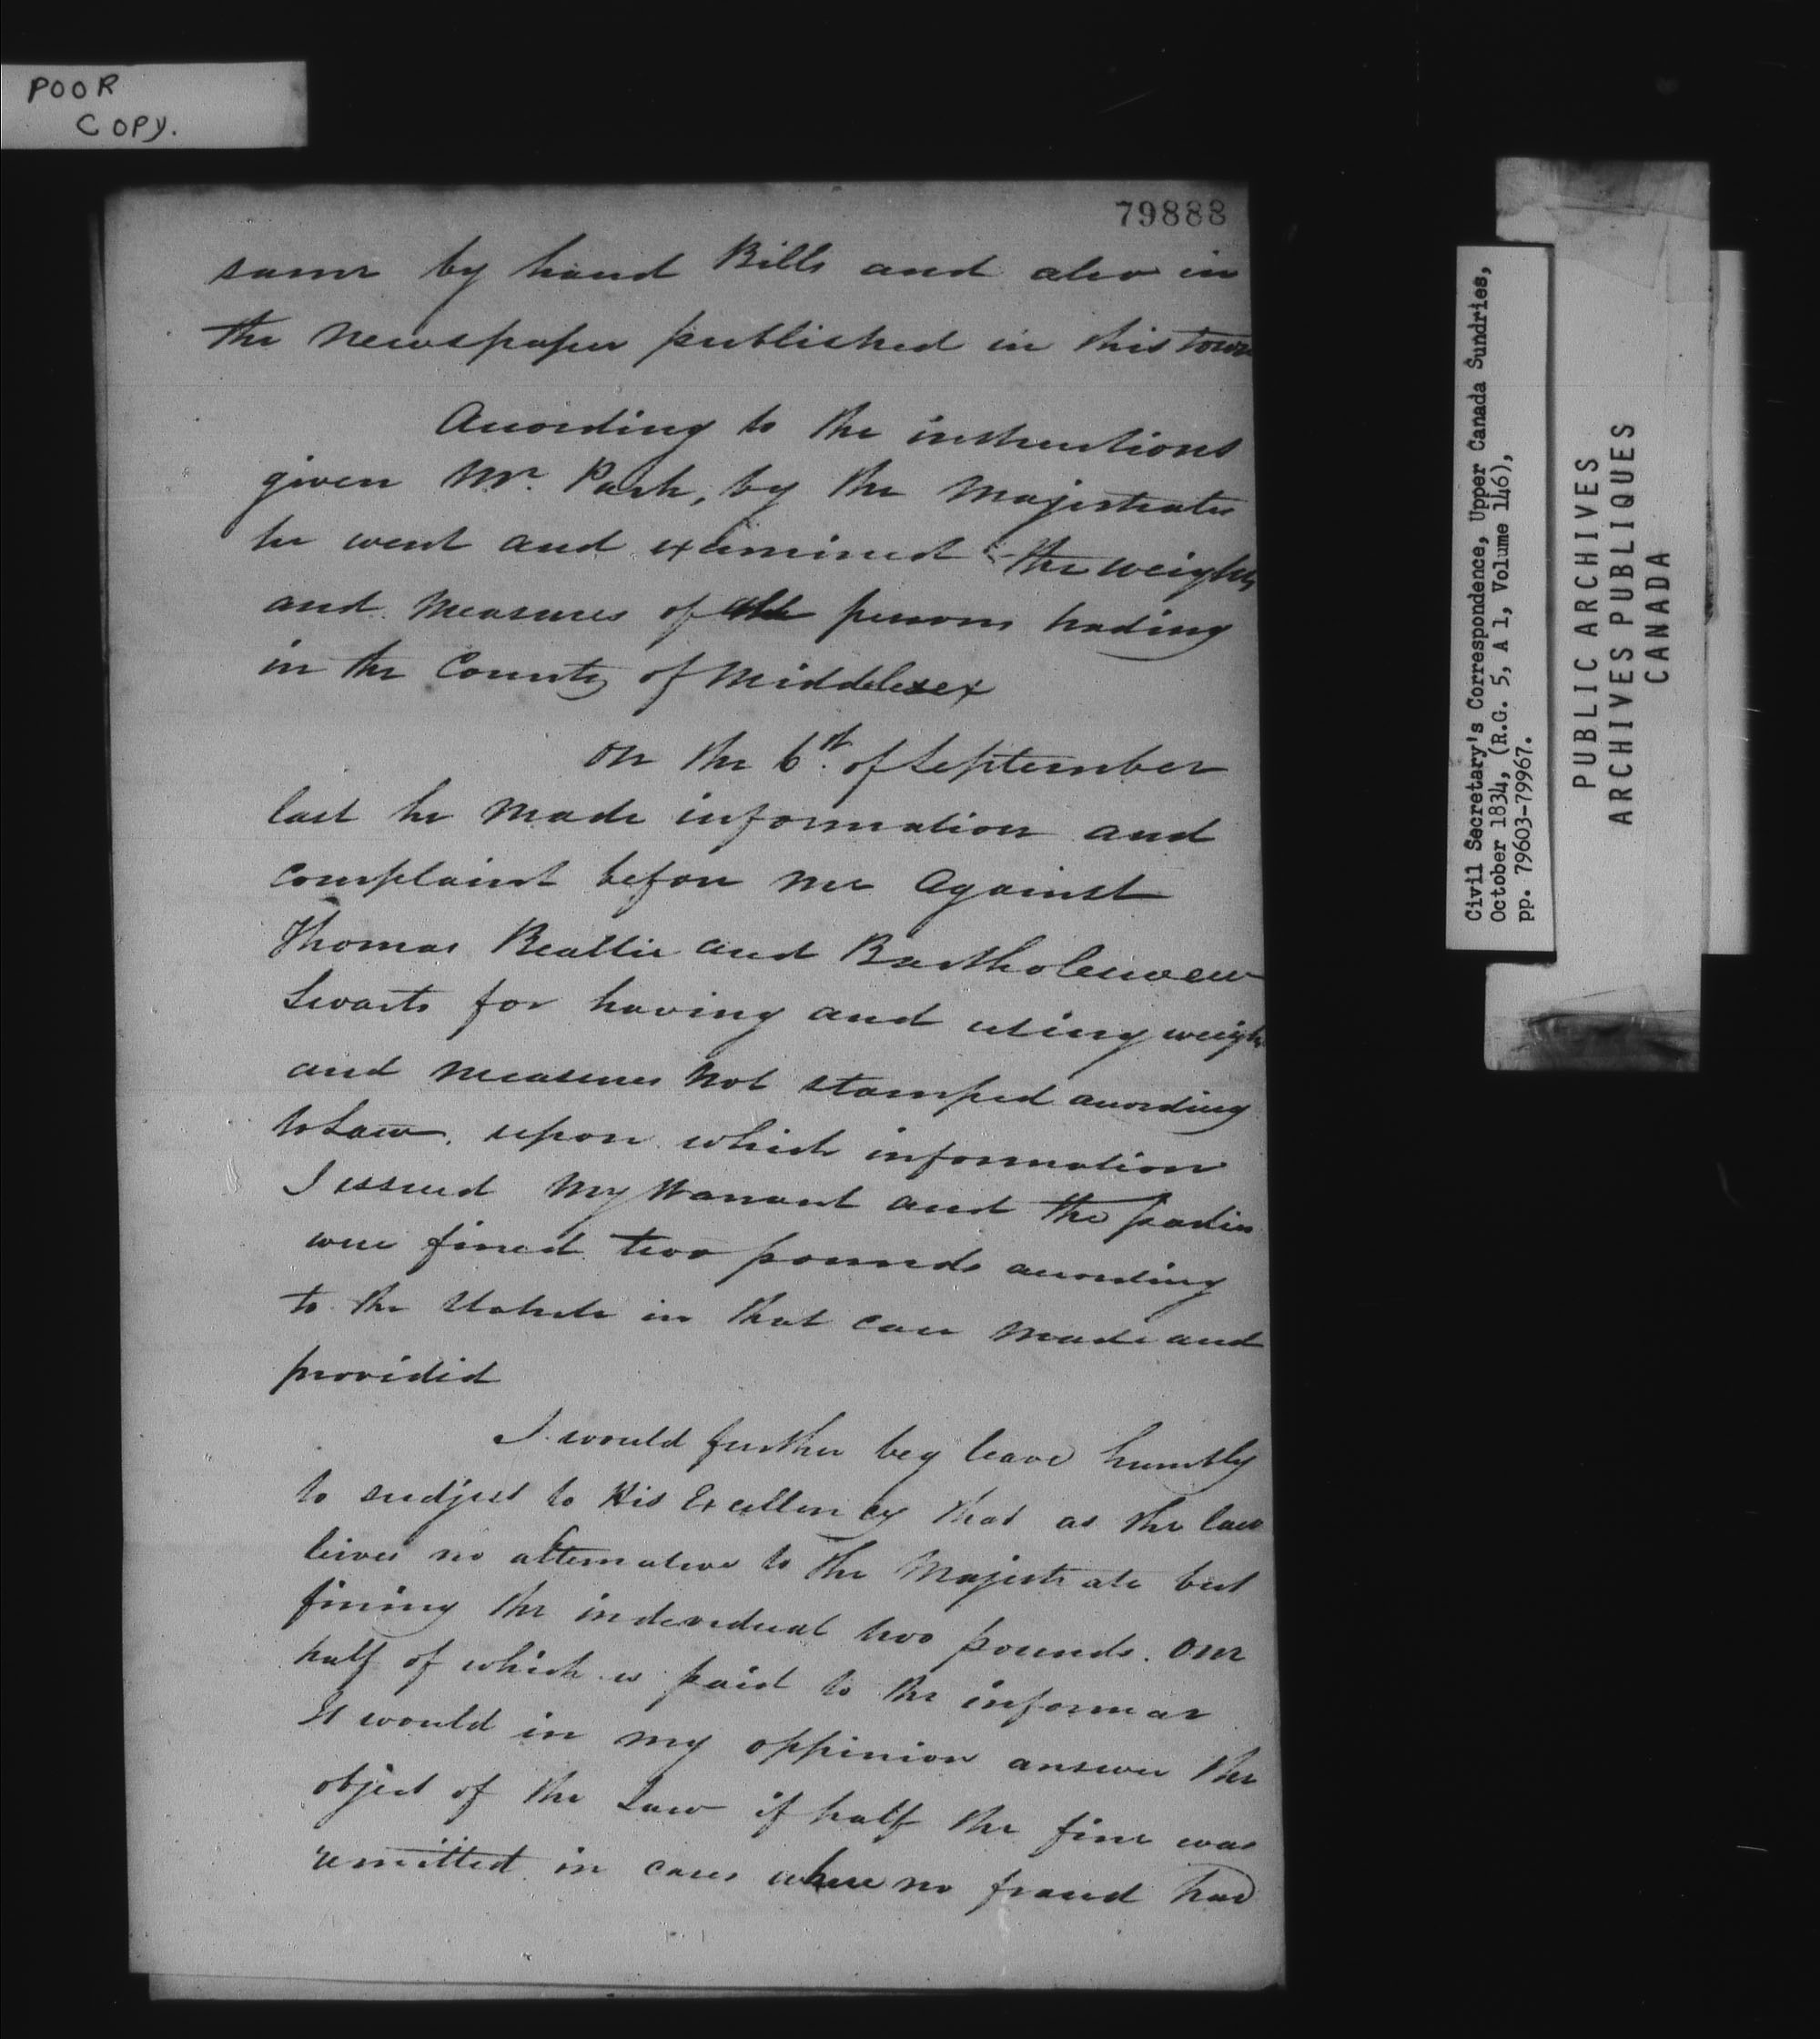 POOR
COPY.
79888
same by hand Bills and also in
the Newspaper published in this town
According to the instructions
given Mr. Park, by the Majistrates
he went and examined the weights
and Measures of all persons trading
in the County of Middelesex
On the 6th. of September
last he Made information and
complaint before me Against
Thomas Beattie and Bartholemwew
Swarts for having and using weights
and measures Not stamped according
to Law. upon which information
I issued My Warrant and the parties
were fined two pounds according
to the Statute in that case Made and
provided
I would further beg leave humbly
to sudjest to His Excellency that as the law
leives no alternative to the Majistrate but
fining the individual two pounds. One
half of which is paid to the informar
It would in my oppinion answer the
object of the Law if half the fine was
remitted in cases where no fraud had
Civil Secretary's Correspondence, Upper Canada Sundries,
October 1834, (R.G. 5, A 1, Volume 146),
pp. 79603-79967.
PUBLIC ARCHIVES
ARCHIVES PUBLIQUES
CANADA